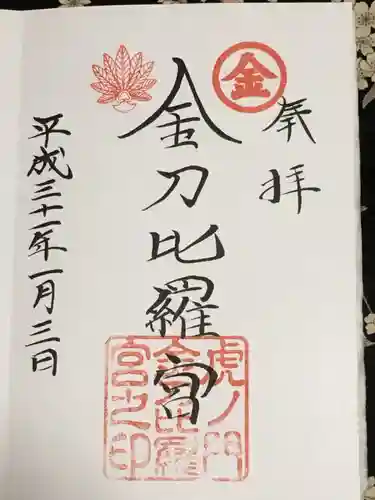 奉拝
金
金刀比羅宮
虎ノ門
金比羅
宮之印
平成三十一年一月三日